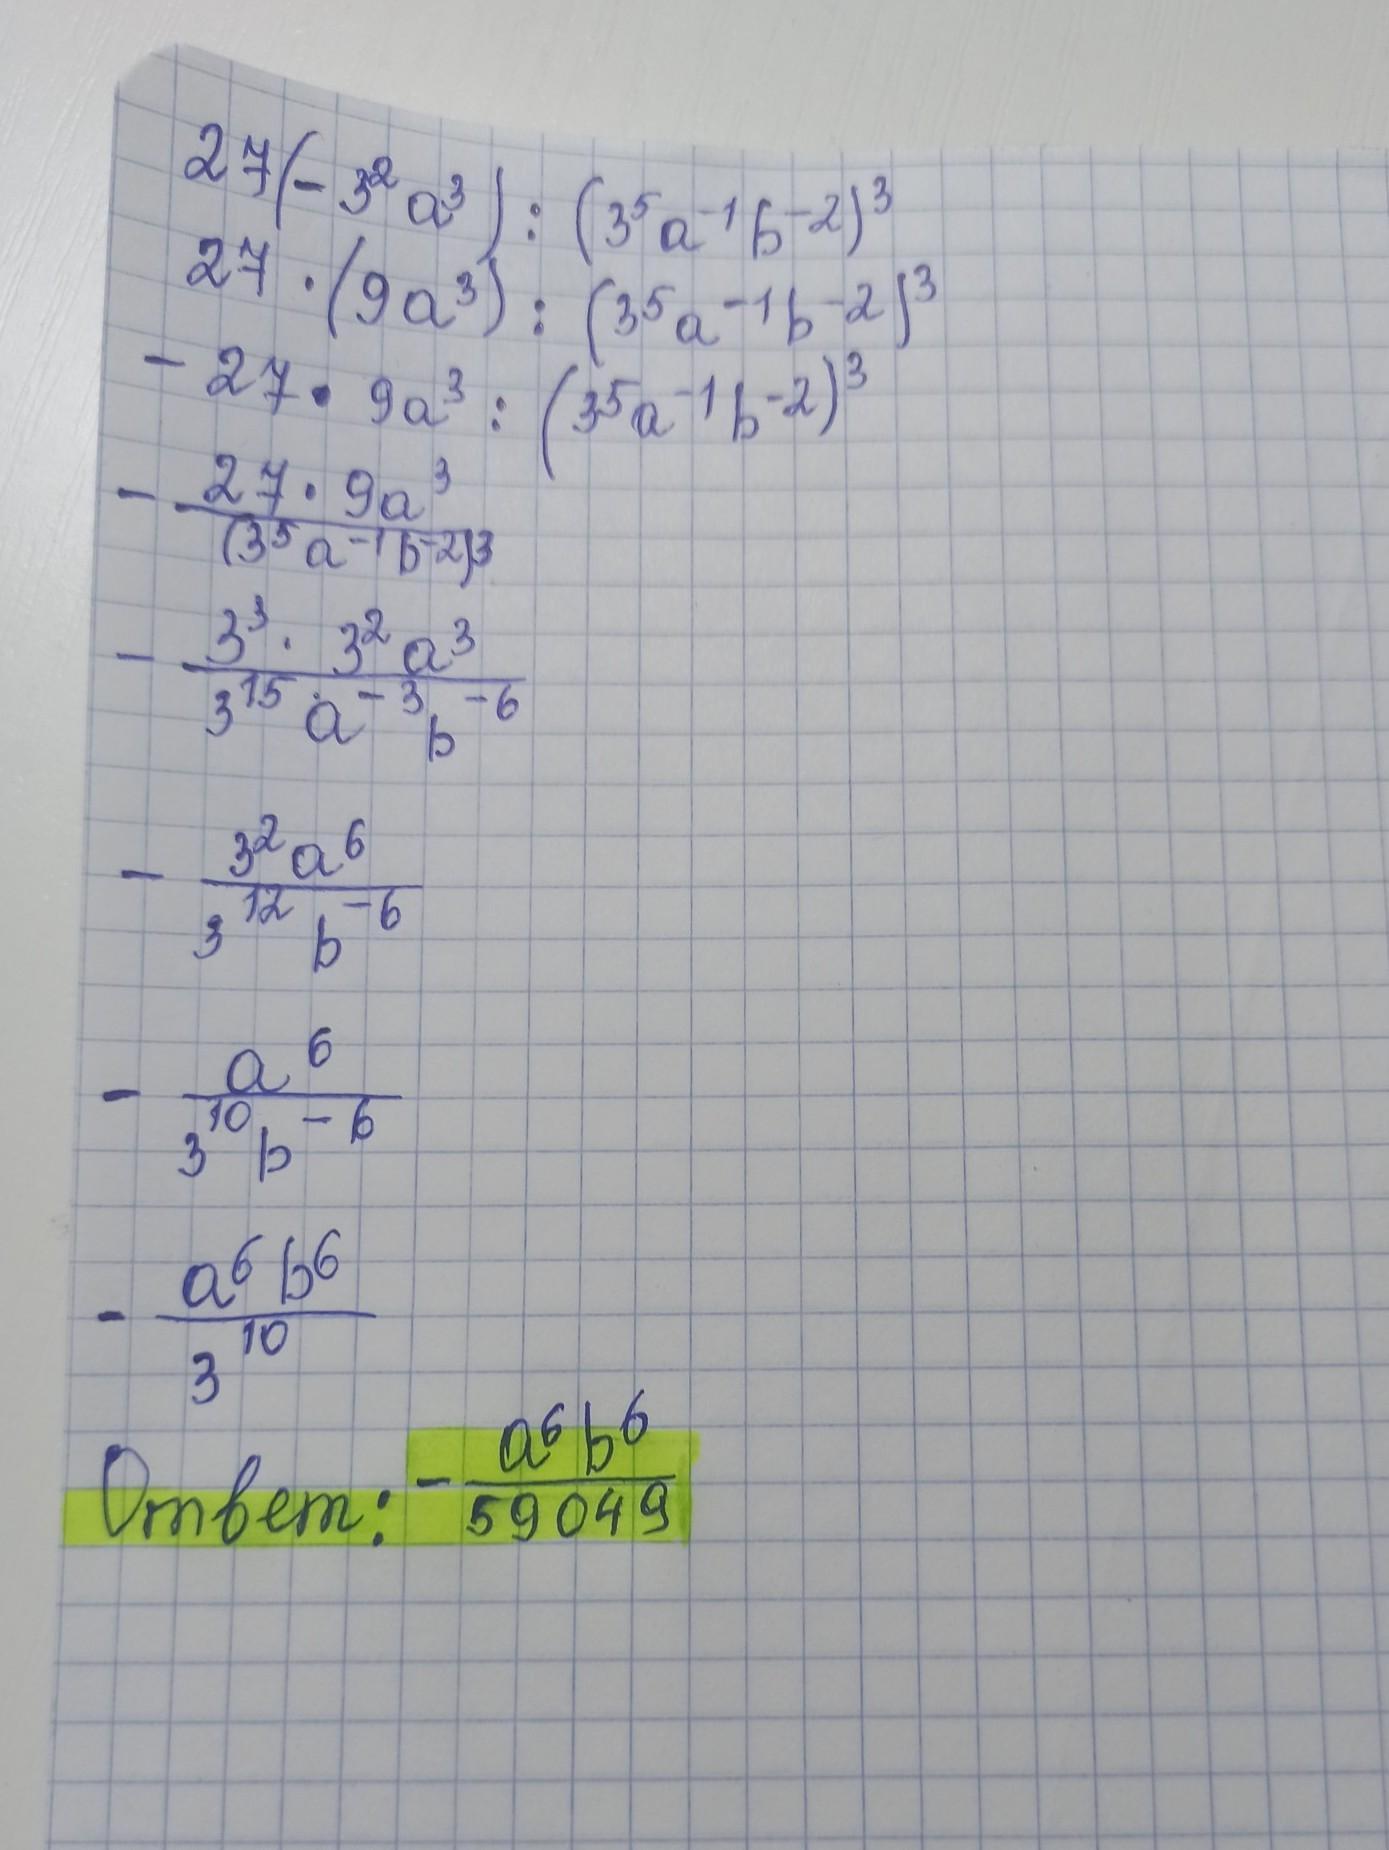 27(-3²a³) : (3⁵a⁻¹b⁻²)³
27 · (9a³) : (3⁵a⁻¹b⁻²)³
- 27 · 9a³ : (3⁵a⁻¹b⁻²)³
- 27 · 9a³
(3⁵a⁻¹b⁻²)³
- 3³ · 3²a³
3¹⁵ · a⁻³b⁻⁶
- 3²a⁶
3¹²b⁻⁶
- a⁶
3¹⁰b⁻⁶
- a⁶b⁶
3¹⁰
Ответ: - a⁶b⁶
59049